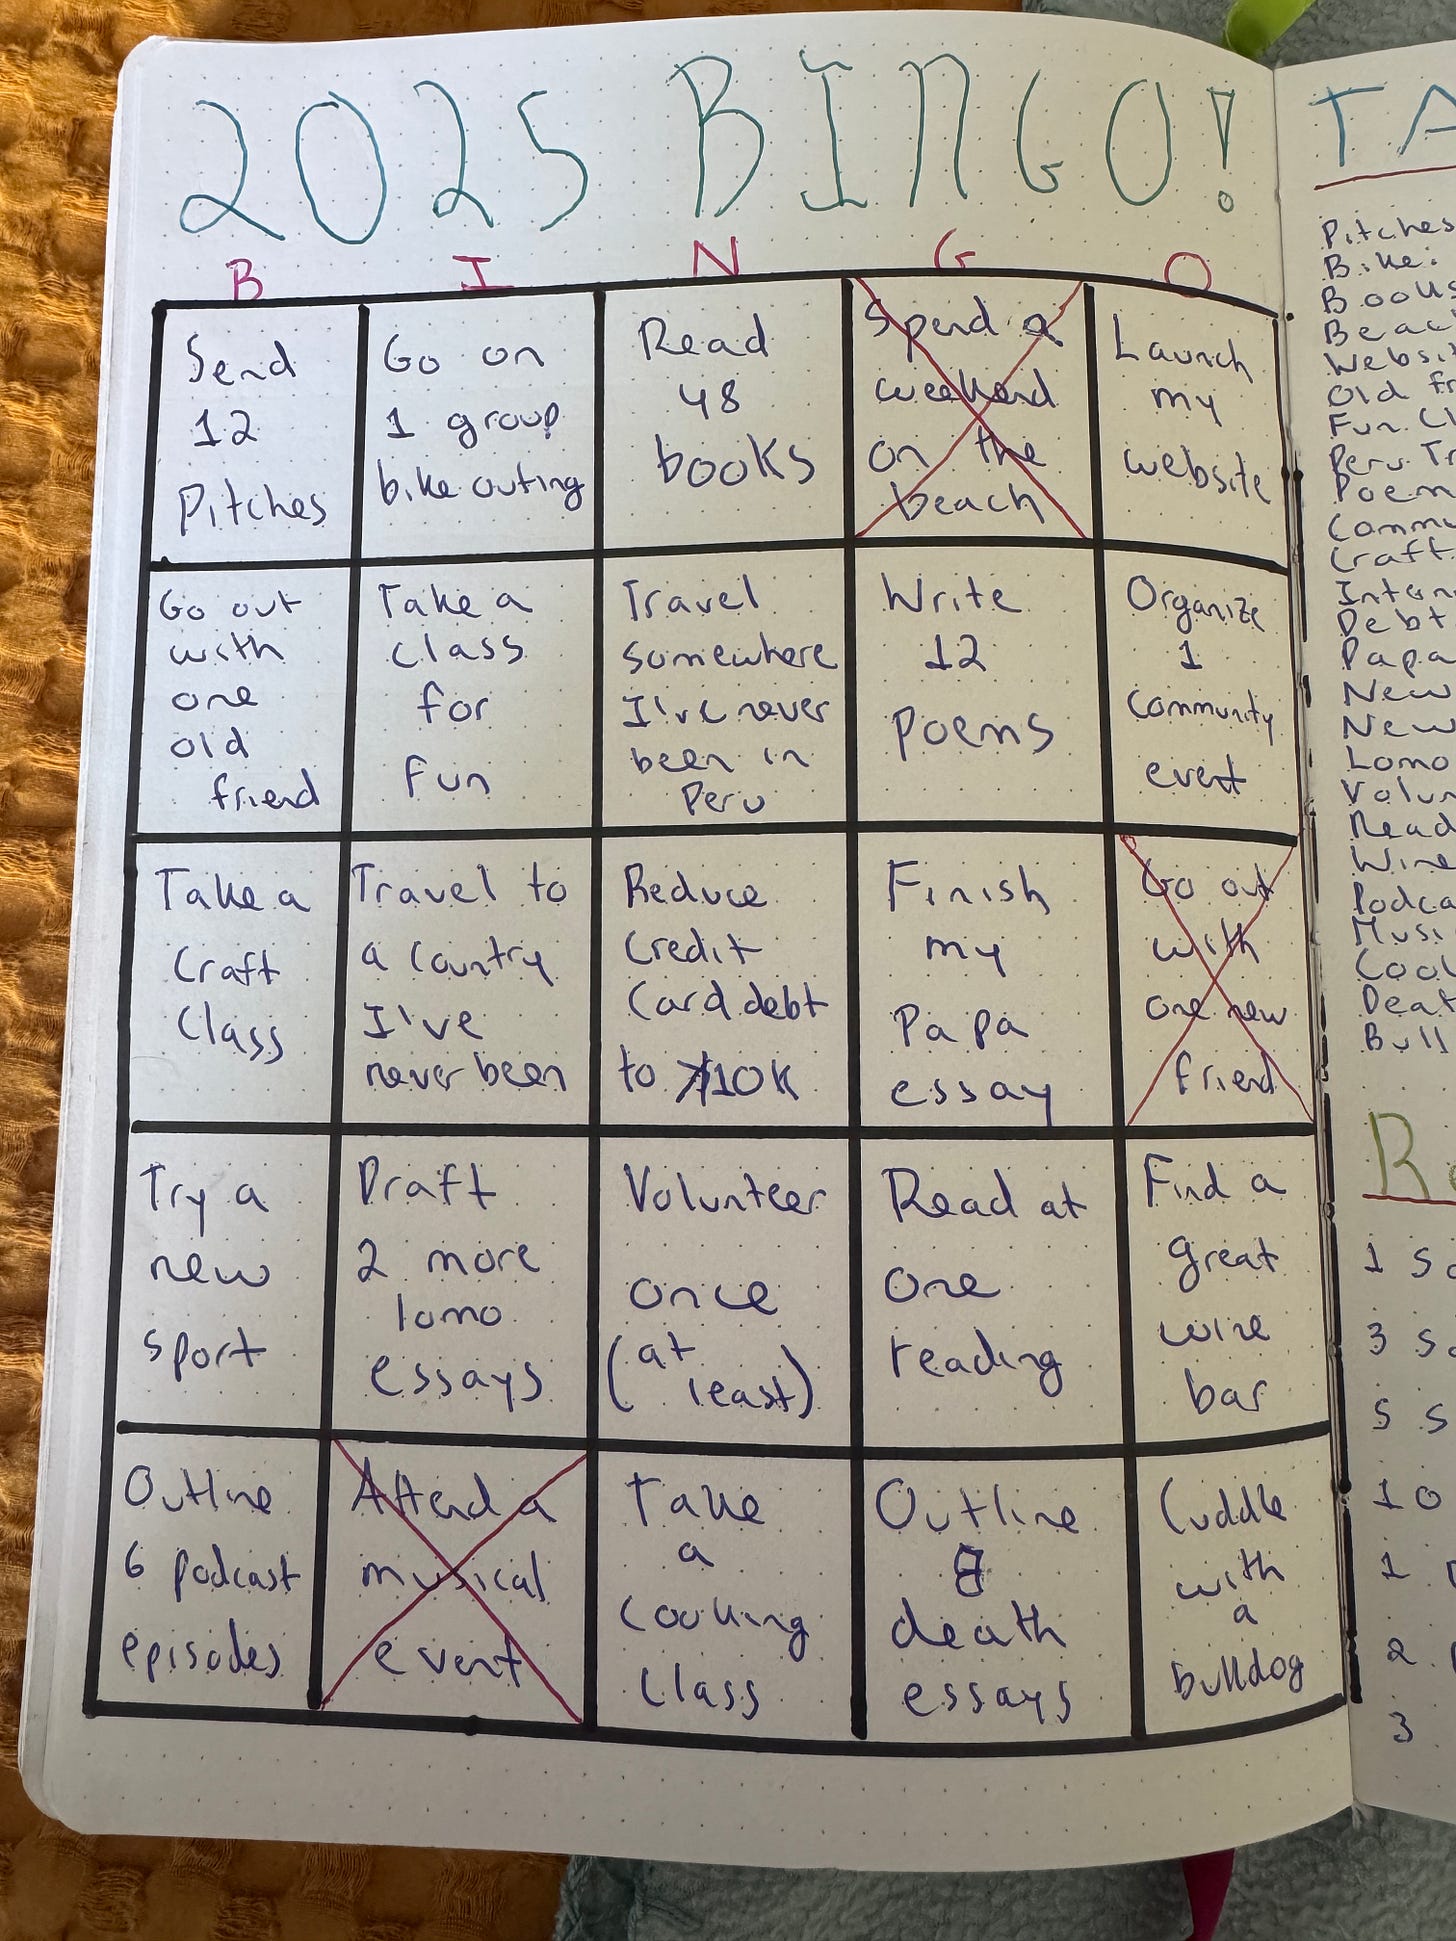 2025 BINGO!
B I N G O
Send
12
Pitches
Go on
1 group
bike outing
Read
48
books
Spend a
weekend
on the
beach
Launch
my
website
Go out
with
one
old
friend
Take a
class
for
fun
Travel
somewhere
I've never
been in
Peru
Write
12
poems
Organize
1
community
event
Take a
Craft
Class
Travel to
a country
I've
never been
Reduce
Credit
Card debt
to 10K
Finish
my
Papa
essay
Go out
with
one new
friend
Try a
new
sport
Draft
2 more
lomo
essays
Volunteer
once
(at
least)
Read at
one
reading
Find a
great
wine
bar
Outline
6 podcast
episodes
Attend a
musical
event
Take
a
cooking
class
Outline
8
death
essays
Cuddle
with
a
bulldog
TA
Pitches
Bike:
Books
Beac
Websi
Old fr
Fun Cl
Peru Tr
Poem
Commu
Craft
Intern
Debt
Papa
New
New
Lomo
Volun
Read
Wine
Podca
Musi
Cool
Deat
Bull
R
1 So
3 So
5 S
10
1
2
3